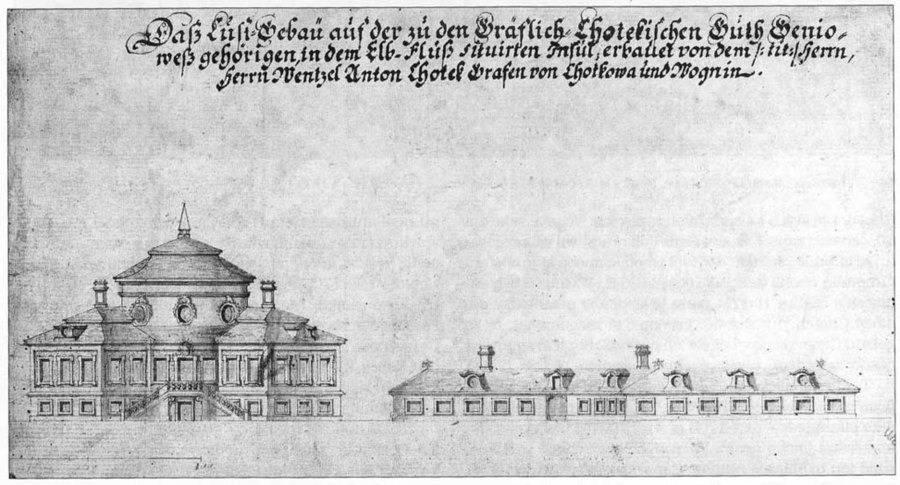 Daß Lust-Gebäu auf der zu den Gräflich-Chotekischen Guth Genio-
weß gehörigen, in dem Elb-Fluß situirten Insul, erbauet von dem /: tit: / Herrn,
Herrn Wentzel Anton Chotek Grafen von Chotkowa und Wognin.